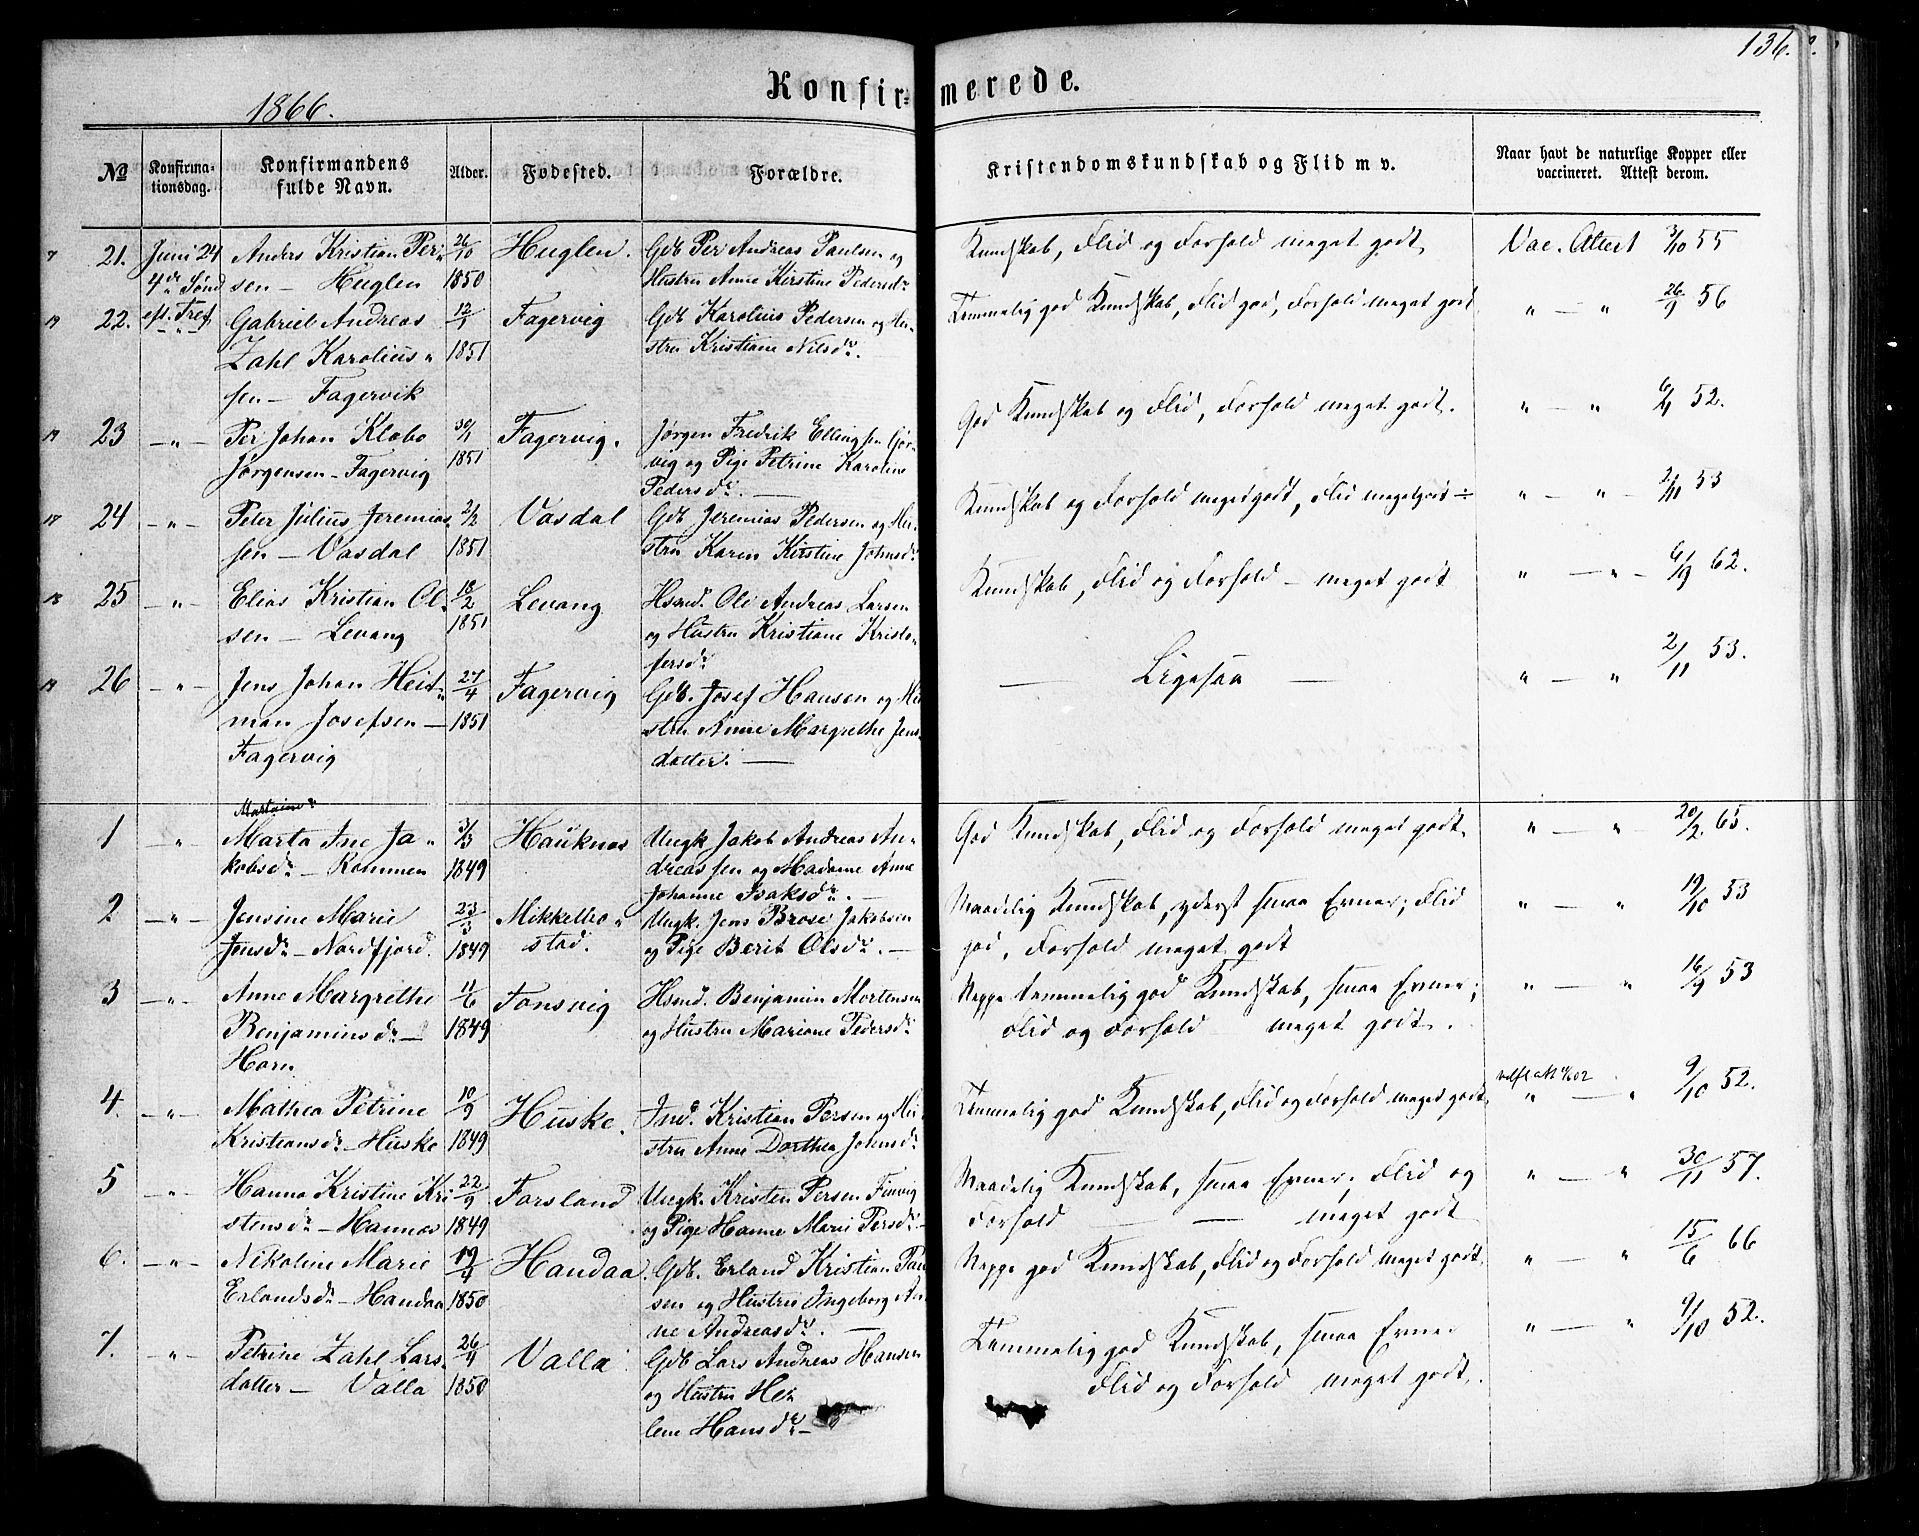 136.
Konfirmerede.
1866.
No
Konfirma-
tionsdag.
Konfirmandens
fulde Navn.
Alder.
Fødested.
Forældre.
Kristendomskundskab og Flid m v.
Naar havt de naturlige Kopper eller
vaccineret. Attest derom.
21. Juni 24 Anders Kristian Per- 26/10 Huglen. Gdb Per Andreas Paulsen og Kundskab, Flid og Forhold meget godt Vac. Attest 3/10 55
4de Sønd sen – Huglen 1850 Hustru Anne Kirstine Pedersdr
22. eft. Tref. Gabriel Andreas 12/1 Fagervig Gdb Karolius Pedersen og Hu- Temmelig god Kundskab, Flid god, Forhold meget godt " – " 26/9 56
Zahl Karolius- 1851 stru Kristiane Nilsdr.
sen – Fagervik
23 – " – Per Johan Klæbo 30/1 Fagervig. Jørgen Fredrik Ellingsen God Kundskab og Flid, Forhold meget godt. " – " 6/9 52.
Jørgensen – Fagervig 1851 vig og Pige Petrine Karoline
Pedersdr. –
24 – " – Peter Julius Jeremias- 2/2 Vasdal Gdb Jeremias Pedersen og Hu- Kundskab og Forhold megetgodt, Flid megetgodt ÷ " – " – 2/11 53
sen – Vasdal 1851 stru Karen Kirstine Johnsdr
25 – " – Elias Kristian Ol- 18/2 Levang Hsmd. Ole Andreas Larsen Kundskab, Flid og Forhold – meget godt " – " – 6/9 62.
sen – Levang 1851 og Hustru Kristiane Kristo-
fersdr
26 – " – Jens Johan Heit- 27/4 Fagervig Gdb. Josef Hansen og Hu – Ligesaa – " – " 2/11 53.
man Josefsen – 1851 stru Anne Margrethe Jens-
Fagervig datter. –
1 – " – Marta Ine Ja- 3/3 Hauknæs Ungk Jakob Andreas An- God Kundskab, Flid og Forhold meget godt. " – " 20/2 65.
kobsdr – Rommen 1849 dreassen og Madame Anne
Johanne Isaksdr. –
2 – " – Jensine Marie 23/3 Mikkelbo- Ungk. Jens Brose Jakobsen Maadelig Kundskab, yderst smaa Evner; Flid " – " 19/10 53
Jensdr – Nordfjord. 1849 stad. og Pige Berit Olsdr. – god, Forhold meget godt
3 – " – Anne Margrethe 11/6 Tonsvig Hsmd. Benjamin Mortensen Neppe temmelig god Kundskab, smaa Evner; " – " 16/9 53
Benjaminsdr – 1849 og Hustru Mariane Pedersdr Flid og Forhold meget godt.
Horn
4. – " – Mathea Petrine 10/9 Huske. Ind. Kristian Persen og Hu- Temmelig god Kundskab, Flid og Forhold meget godt. " – " 9/10 52.
Kristiansdr – Huske 1849 stru Anne Dorthea Johnsdr
5 – " – Hanna Kristine Kri- 22/9 Forsland Ungk. Kristen Persen Finvig Maadelig Kundskab, smaa Evner, Flid og " – " 30/11 57.
stensdr – Hannæs 1849 og Pige Hanne Marie Persdr. Forhold – meget godt
6. – " – Nikoline Marie 19/4 Handaa. Gdb. Erland Kristian Paul- Neppe god Kundskab, Flid og Forhold meget godt. " – " 15/6 66
Erlandsdr – Handaa 1850 sen og Hustru Ingeborg An-
ne Andreasdr. –
7. " – Petrine Zahl Lars- 26/4 Valla Gdb Lars Andreas Hansen Temmelig god Kundskab, smaa Evner " – " 9/10 52.
datter – Valla 1850 og Hustru He- Flid og Forhold meget godt.
lene Hansdr –